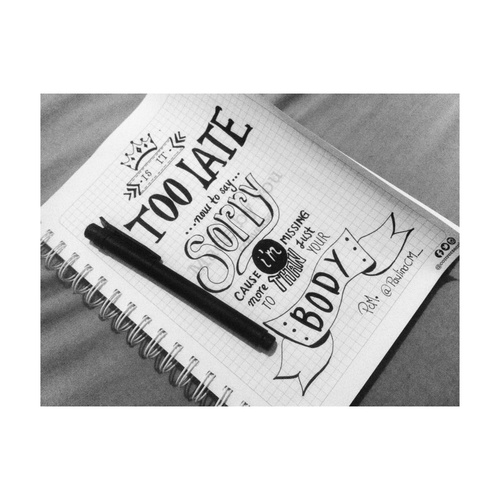 IS IT
TOO LATE
...now to say...
Sorry
CAUSE im MISSING
more THAN just
TO YOUR
BODY
PCM. @PaulinaCM_